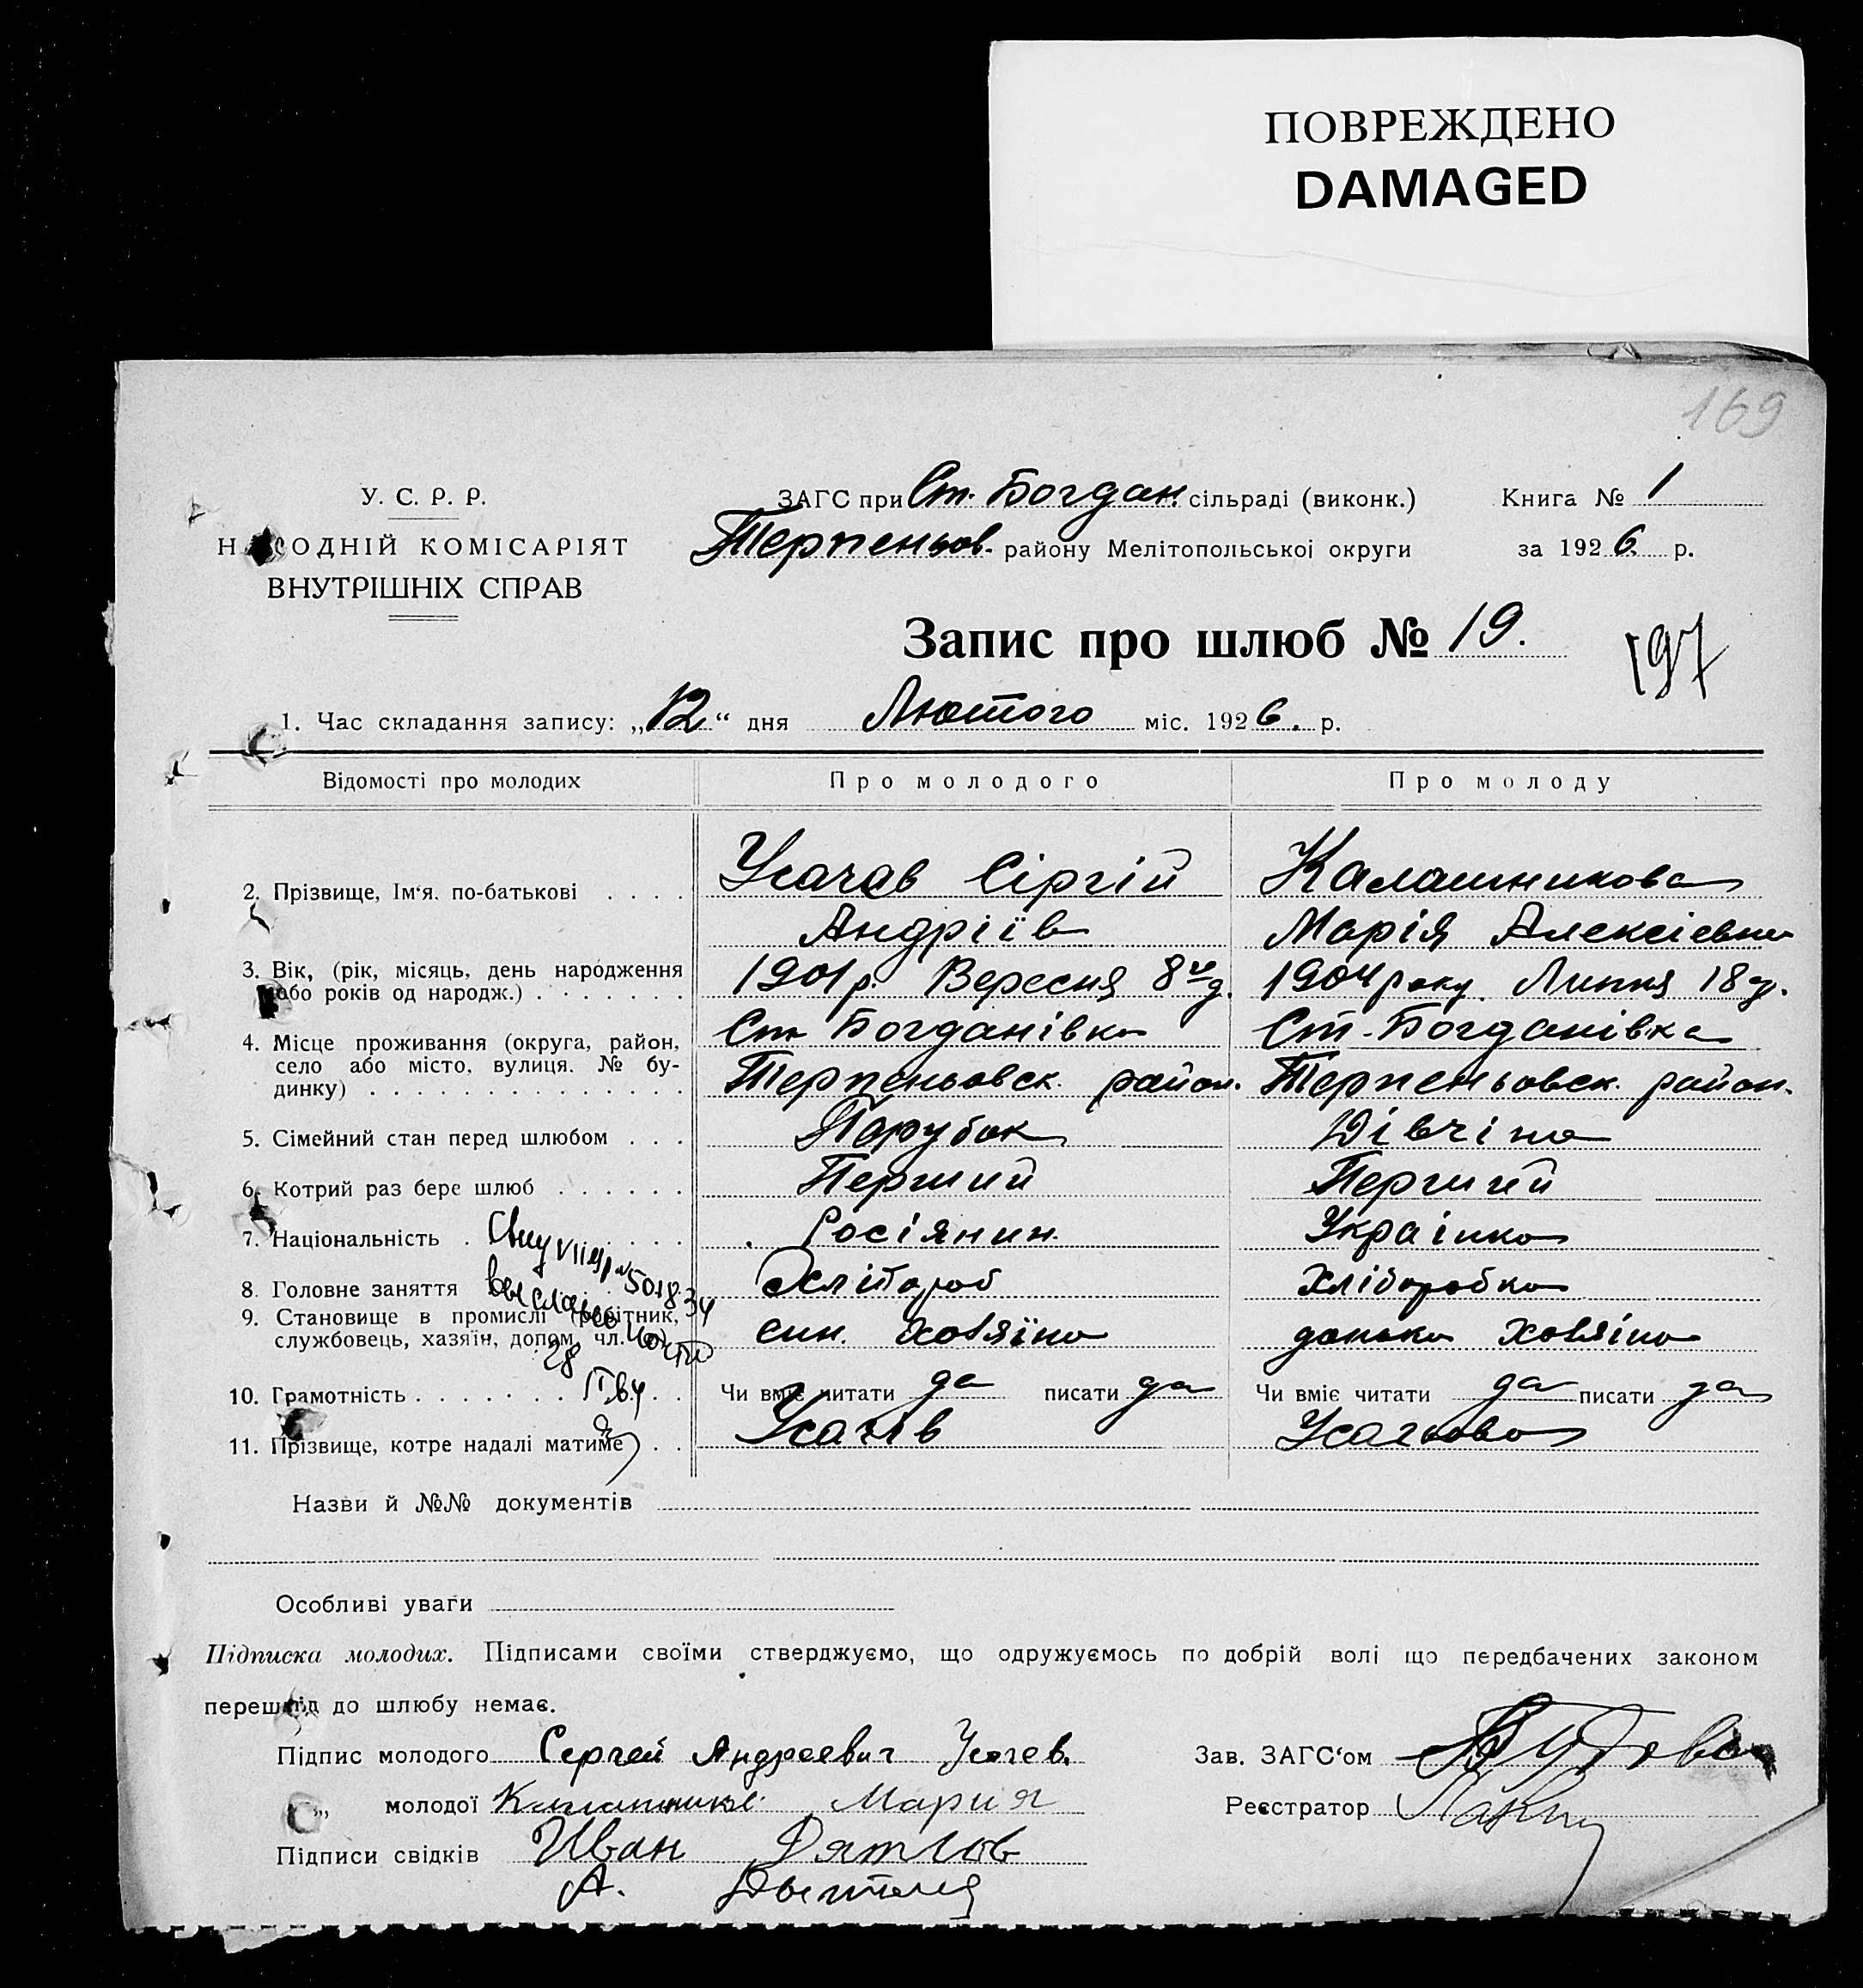 ПОВРЕЖДЕНО
DAMAGED
169
У. С. Р. Р.
НАРОДНІЙ КОМІСАРІЯТ
ВНУТРІШНІХ СПРАВ
ЗАГС при Ст. Богдан. сільраді (виконк.) Книга № 1
Терпеньов. району Мелітопольськоі округи за 1926. р.
Запис про шлюб № 19.
197
1. Час складання запису: „12" дня Лютого міс. 1926. р.
Відомості про молодих Про молодого Про молоду
2. Прізвище, Ім'я, по-батькові . . . . Усачав Сіргій Калашникова
Андріїв Марія Алексієвна
3. Вік, (рік, місяць, день народження 1901 р. Вересня 8го д. 1904 року. Липня 18 д.
або років од народж.) . . . . . . . Ст Богданівка Ст-Богданівка
4. Місце проживання (округа, район,
село або місто, вулиця. № бу- Терпеньовск. район. Терпеньовск. район.
динку) . . . . . . . . . . . . . .
5. Сімейний стан перед шлюбом . . . Парубок Дівчіна
6. Котрий раз бере шлюб . . . . . . Перший Перший
7. Національність . . . . . Росіянин. Украінка
8. Головне заняття Хлібороб Хліборобка
9. Становище в промислі (робітник,
службовець, хазяїн, допом. чл. син. Хазяїна донька Хазяіна
10. Грамотність . . . . . . . Чи вміє читати да писати да Чи вміє читати да писати да
11. Прізвище, котре надалі матиме . . Усачів Усачьова
Назви й №№ документів
Особливі уваги
Підписка молодих. Підписами своїми стверджуємо, що одружуємось по добрій волі що передбачених законом
перешкід до шлюбу немає.
Підпис молодого Сергей Андреевич Усачев. Зав. ЗАГС'ом
„ молодої Калашникв Мария Реєстратор
Підписи свідків Иван Дятлов
А.